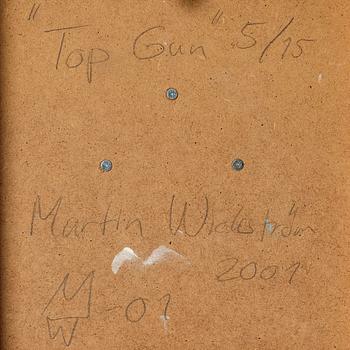 "Top Gun" 5/15
Martin Wickström
2001
MW -01